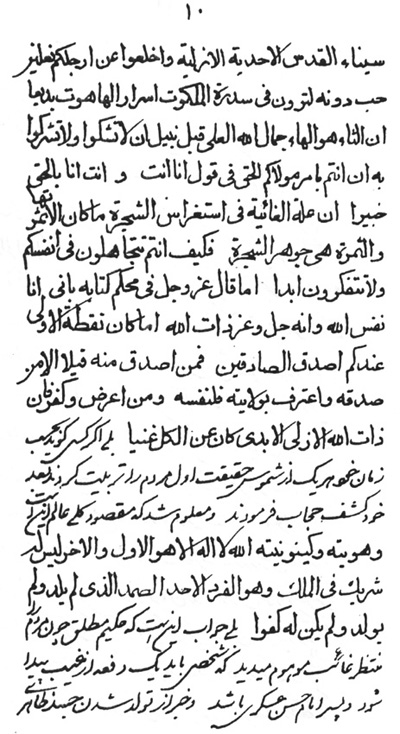 ١٠
سيناء القدس الاحدية الازلية واخلعوا عن ارجلكم نعلين
حب دونه لترون في سدرة الملكوت اسرار الهاهوت بديعا
ان الثاء هو الهاء جمال الله العلي قبل نبيل ان لا تشكوا ولا تشركوا
به ان انتم بامر مولاكم الحق في قول انا انت و انت انا بالحق
خبيرا ان علة الغائية في استغراس الشجرة ما كان الا ثمرتها
والثمرة هي جوهر الشجرة فكيف انتم تتجاهلون في انفسكم
ولا تتفكرون ابدا اما قال عز وجل في محكم كتابه باني انا
نفس الله وانه جل وعز ذات الله اما كان نقطة الاولى
عندكم اصدق الصادقين فمن اصدق منه قيلا الا من
صدقه واعترف بولايته فلنفسه ومن اعرض وكفر فان
ذات الله الازلي الابدي كان عن الكل غنيا بلي اگر كسی گويد بحسب
زمان خود هر يک از شموس حقيقت اول مردم را تربيت كردند بعد
خود كشف حجاب فرمودند ومعلوم شد كه مقصود كلی عالم
وهويته وكينونيته الله لا اله الا هو الاول والاخر ليس له
شريك في الملك وهو الفرد الاحد الصمد الذي لم يلد ولم
يولد ولم يكن له كفوا بلی جواب اينست كه حكيم مطلق چون مردم را
منتظر غائب موهوم ميديد كه شخصی بايد يک دفعه از غيب پيدا
شود و پسر امام حسن عسكری باشد وخبر از تولد شدن جسد ظاهری